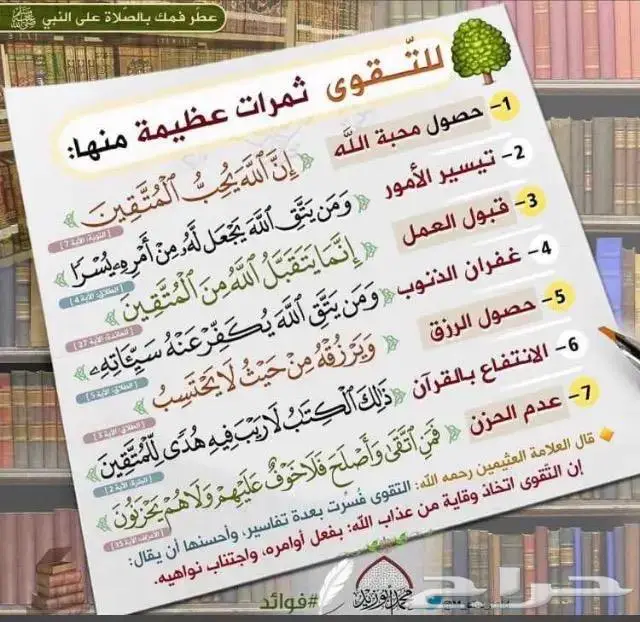 عطّر فمك بالصّلاة على النبي ﷺ
للتَّقوى ثمرات عظيمة منها:
1- حصول محبة الله
﴿إِنَّ ٱللَّهَ يُحِبُّ ٱلْمُتَّقِينَ﴾
[التوبة: الآية 7]
2- تيسير الأمور
﴿وَمَن يَتَّقِ ٱللَّهَ يَجْعَل لَّهُۥ مِنْ أَمْرِهِۦ يُسْرًا﴾
[الطلاق: الآية 4]
3- قبول العمل
﴿إِنَّمَا يَتَقَبَّلُ ٱللَّهُ مِنَ ٱلْمُتَّقِينَ﴾
[المائدة: الآية 27]
4- غفران الذنوب
﴿وَمَن يَتَّقِ ٱللَّهَ يُكَفِّرْ عَنْهُ سَيِّـَٔاتِهِۦ﴾
[الطلاق: الآية 5]
5- حصول الرزق
﴿وَيَرْزُقْهُ مِنْ حَيْثُ لَا يَحْتَسِبُ﴾
[الطلاق: الآية 3]
6- الانتفاع بالقرآن
﴿ذَٰلِكَ ٱلْكِتَٰبُ لَا رَيْبَ فِيهِ هُدًى لِّلْمُتَّقِينَ﴾
[البقرة: الآية 2]
7- عدم الحزن
﴿فَمَنِ ٱتَّقَىٰ وَأَصْلَحَ فَلَا خَوْفٌ عَلَيْهِمْ وَلَا هُمْ يَحْزَنُونَ﴾
[الأعراف: الآية 35]
قال العلامة العثيمين رحمه الله: التقوى فسّرت بعدة تفاسير، وأحسنها أن يقال:
إن التّقوى اتخاذ وقاية من عذاب الله: بفعل أوامره، واجتناب نواهيه.
#فوائد
محمد أبو زيد
حراج